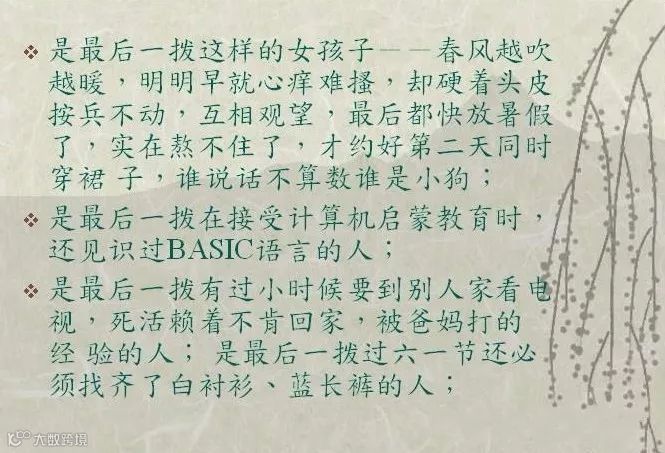 ❖ 是最后一拨这样的女孩子——春风越吹
越暖，明明早就心痒难搔，却硬着头皮
按兵不动，互相观望，最后都快放暑假
了，实在熬不住了，才约好第二天同时
穿裙 子，谁说话不算数谁是小狗；
❖ 是最后一拨在接受计算机启蒙教育时，
还见识过BASIC语言的人；
❖ 是最后一拨有过小时候要到别人家看电
视，死活赖着不肯回家，被爸妈打的
经 验的人； 是最后一拨过六一节还必
须找齐了白衬衫、蓝长裤的人；
大数跨境